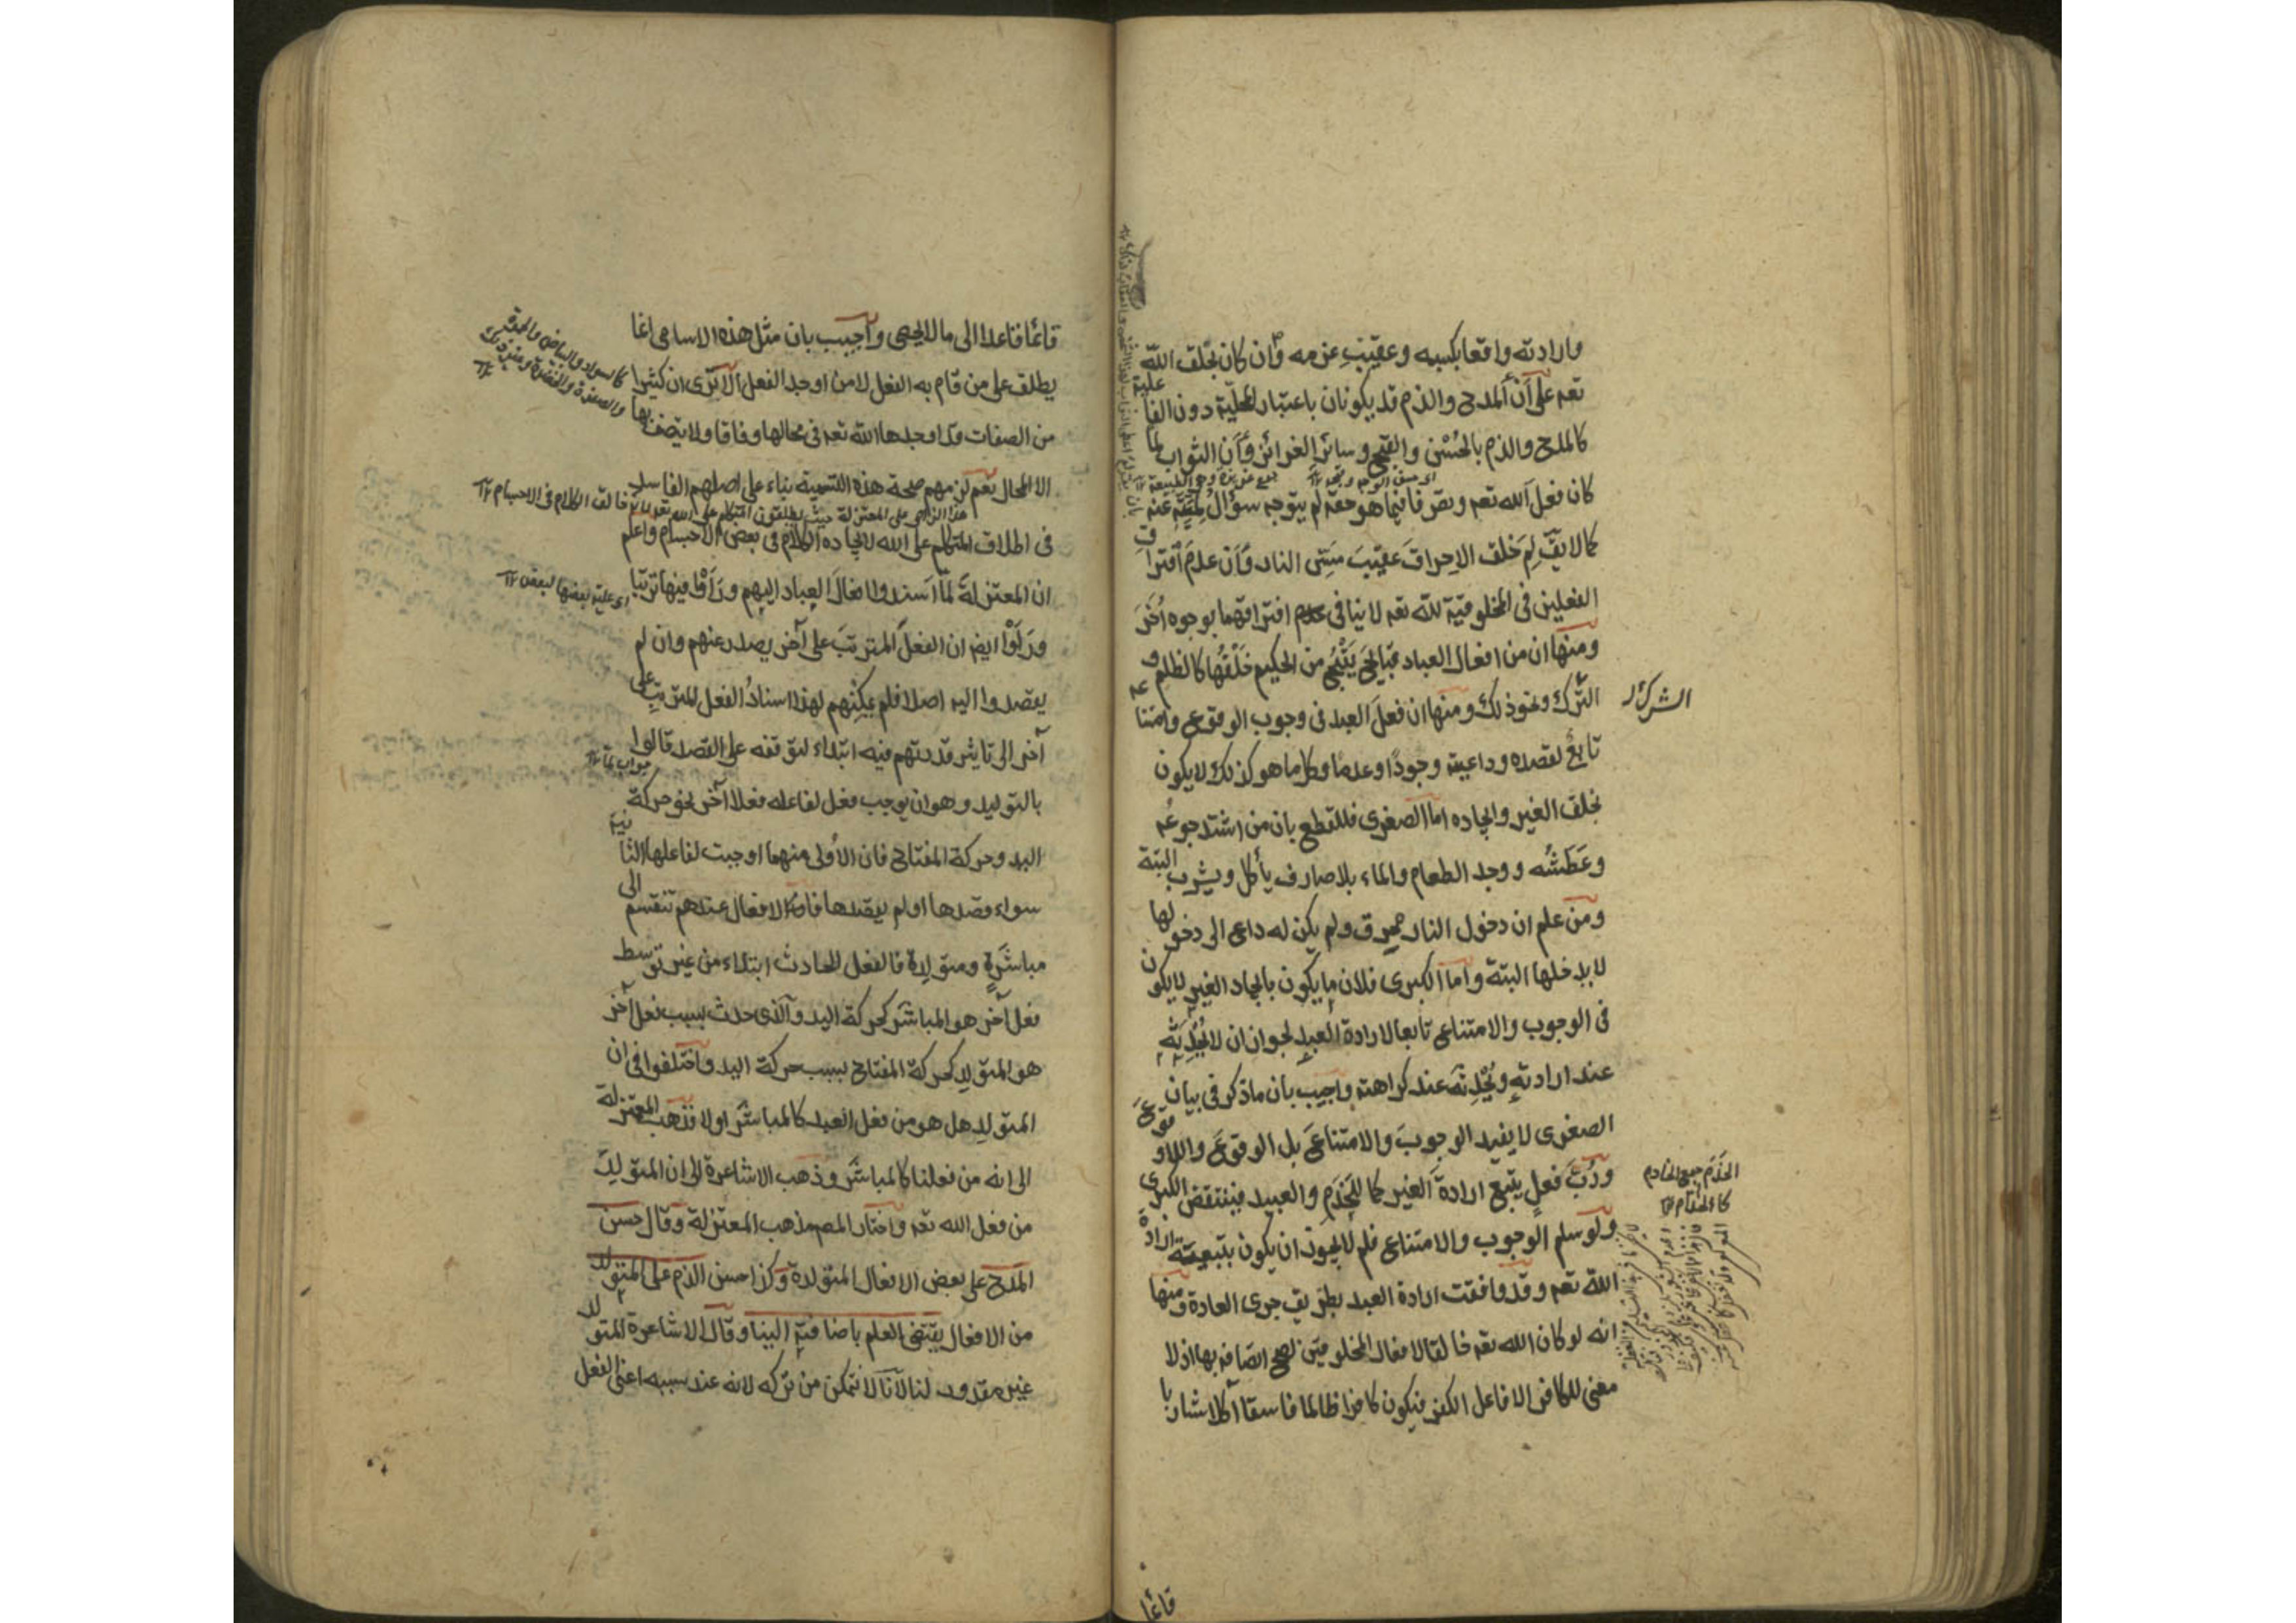 وارادته واقعا بكسبه وعقيب عزمه وان كان بخلق الله
تعه على أن المدح والذم قد يكونان باعتبار المحلية دون الفاعلية
كالمدح والذم بالحُسْن والقبح وسائر الغرائز وأن الثواب لما
كان فعل الله تعه وتصرفا فيما هو حقه لم يتوجه سؤال لميته عنه
كما لا يقّ لِمَ خلق الاحراقَ عقيبَ مسّ النار وأن عدمَ افتراق
الفعلين في المخلوقية لله تعه لا ينافي افتراقهما بوجوه اُخَرَ
ومنها ان من افعال العباد قبايح يَقْبُح من الحكيم خَلْقُها كالظلم و
الشرك
الشرك ونحو ذلك ومنها ان فعلَ العبد في وجوب الوقوع وامتناعه
تابعٌ لقصده وداعيته وجودًا وعدمًا وكل ما هو كذلك لا يكون
بخلق الغير وايجاده اما الصغرى فللقطع بان من اشتد جوعُه
وعَطَشُه ووجد الطعام والماء بلا صارف يأكل ويشرب البتة
ومن علم ان دخول النار محرق ولم يكن له داع الى دخولها
لا يدخلها البتة واما الكبرى فلان ما يكون بايجاد الغير لا يكون
في الوجوب والامتناع تابعا لارادة العبد لجواز ان لا يُحْدِثَه
عند ارادته ويُحْدِثَه عند كراهته واجيب بان ما ذكر في بيان
الصغرى لا يفيد الوجوبَ والامتناعَ بل الوقوعَ واللاوقوعَ
الخَدَم جمع الخادم
كالخدّام
ورُبّ فعلٍ يتبع ارادةَ الغير كما للخَدَمِ والعبيد فينتقض الكبرى
ولو سلم الوجوب والامتناع فلم لا يجوز ان يكون بتبعية ارادة
الله تعه وقد وافقت ارادة العبد بطريق جرى العادة ومنها
انه لو كان الله تعه خالقا لافعال المخلوقين لصح اتصافه بها اذ لا
معنى للكافر الا فاعل الكفر فيكون كافرا ظالما فاسقا آكلا شاربا
قائما
قائما قاعدا الى ما لا يحصى وأجيب بان مثل هذه الاسامى انما
يطلق على من قام به الفعل لا من اوجد الفعل الا ترى ان كثيرا
كالسواد والبياض والحمرة
والصفرة والخضرة وغير ذلك
من الصفات قد اوجدها الله تعه في محالها وفاقا ولا يتصف بها
الا المحال نعم لزمهم صحة هذه التسمية بناء على اصلهم الفاسد
في اطلاق المتكلم على الله لايجاده الكلام في بعض الاجسام واعلم
ان المعتزلة لمّا اَسندوا افعالَ العباد اليهم ورَأَوْا فيها ترتبا
ورَأَوْا ايضا ان الفعلَ المترتبَ على آخر يصدر عنهم وان لم
يقصدوا اليه اصلا فلم يمكنهم لهذا اسنادُ الفعل المترتب على
آخر الى تاثير قدرتهم فيه ابتداء لتوقفه على القصد قالوا
جواب لما
بالتوليد وهو ان يوجب فعل لفاعله فعلا آخر نحو حركة
اليد وحركة المفتاح فان الاُولى منهما اوجبت لفاعلها الثانية
سواء قصدها او لم يقصدها فالافعال عندهم تنقسم الى
مباشَرةٍ ومتولدة فالفعل الحادث ابتداء من غير توسط
فعل آخر هو المباشَر كحركة اليد والذى حدث بسبب فعل آخر
هو المتولد كحركة المفتاح بسبب حركة اليد واختلفوا في ان
المتولد هل هو من فعل العبد كالمباشَر او لا فذهب المعتزلة
الى انه من فعلنا كالمباشَر وذهب الاشاعرة الى ان المتولد
من فعل الله تعه واختار المص مذهب المعتزلة وقال حسن
المدح على بعض الافعال المتولدة وكذا حسن الذم على المتولد
من الافعال يقتضى العلم باضافته الينا وقال الاشاعرة المتولد
غير مقدور لنا لأنا لا نتمكن من تركه لانه عند سببه اعنى الفعل